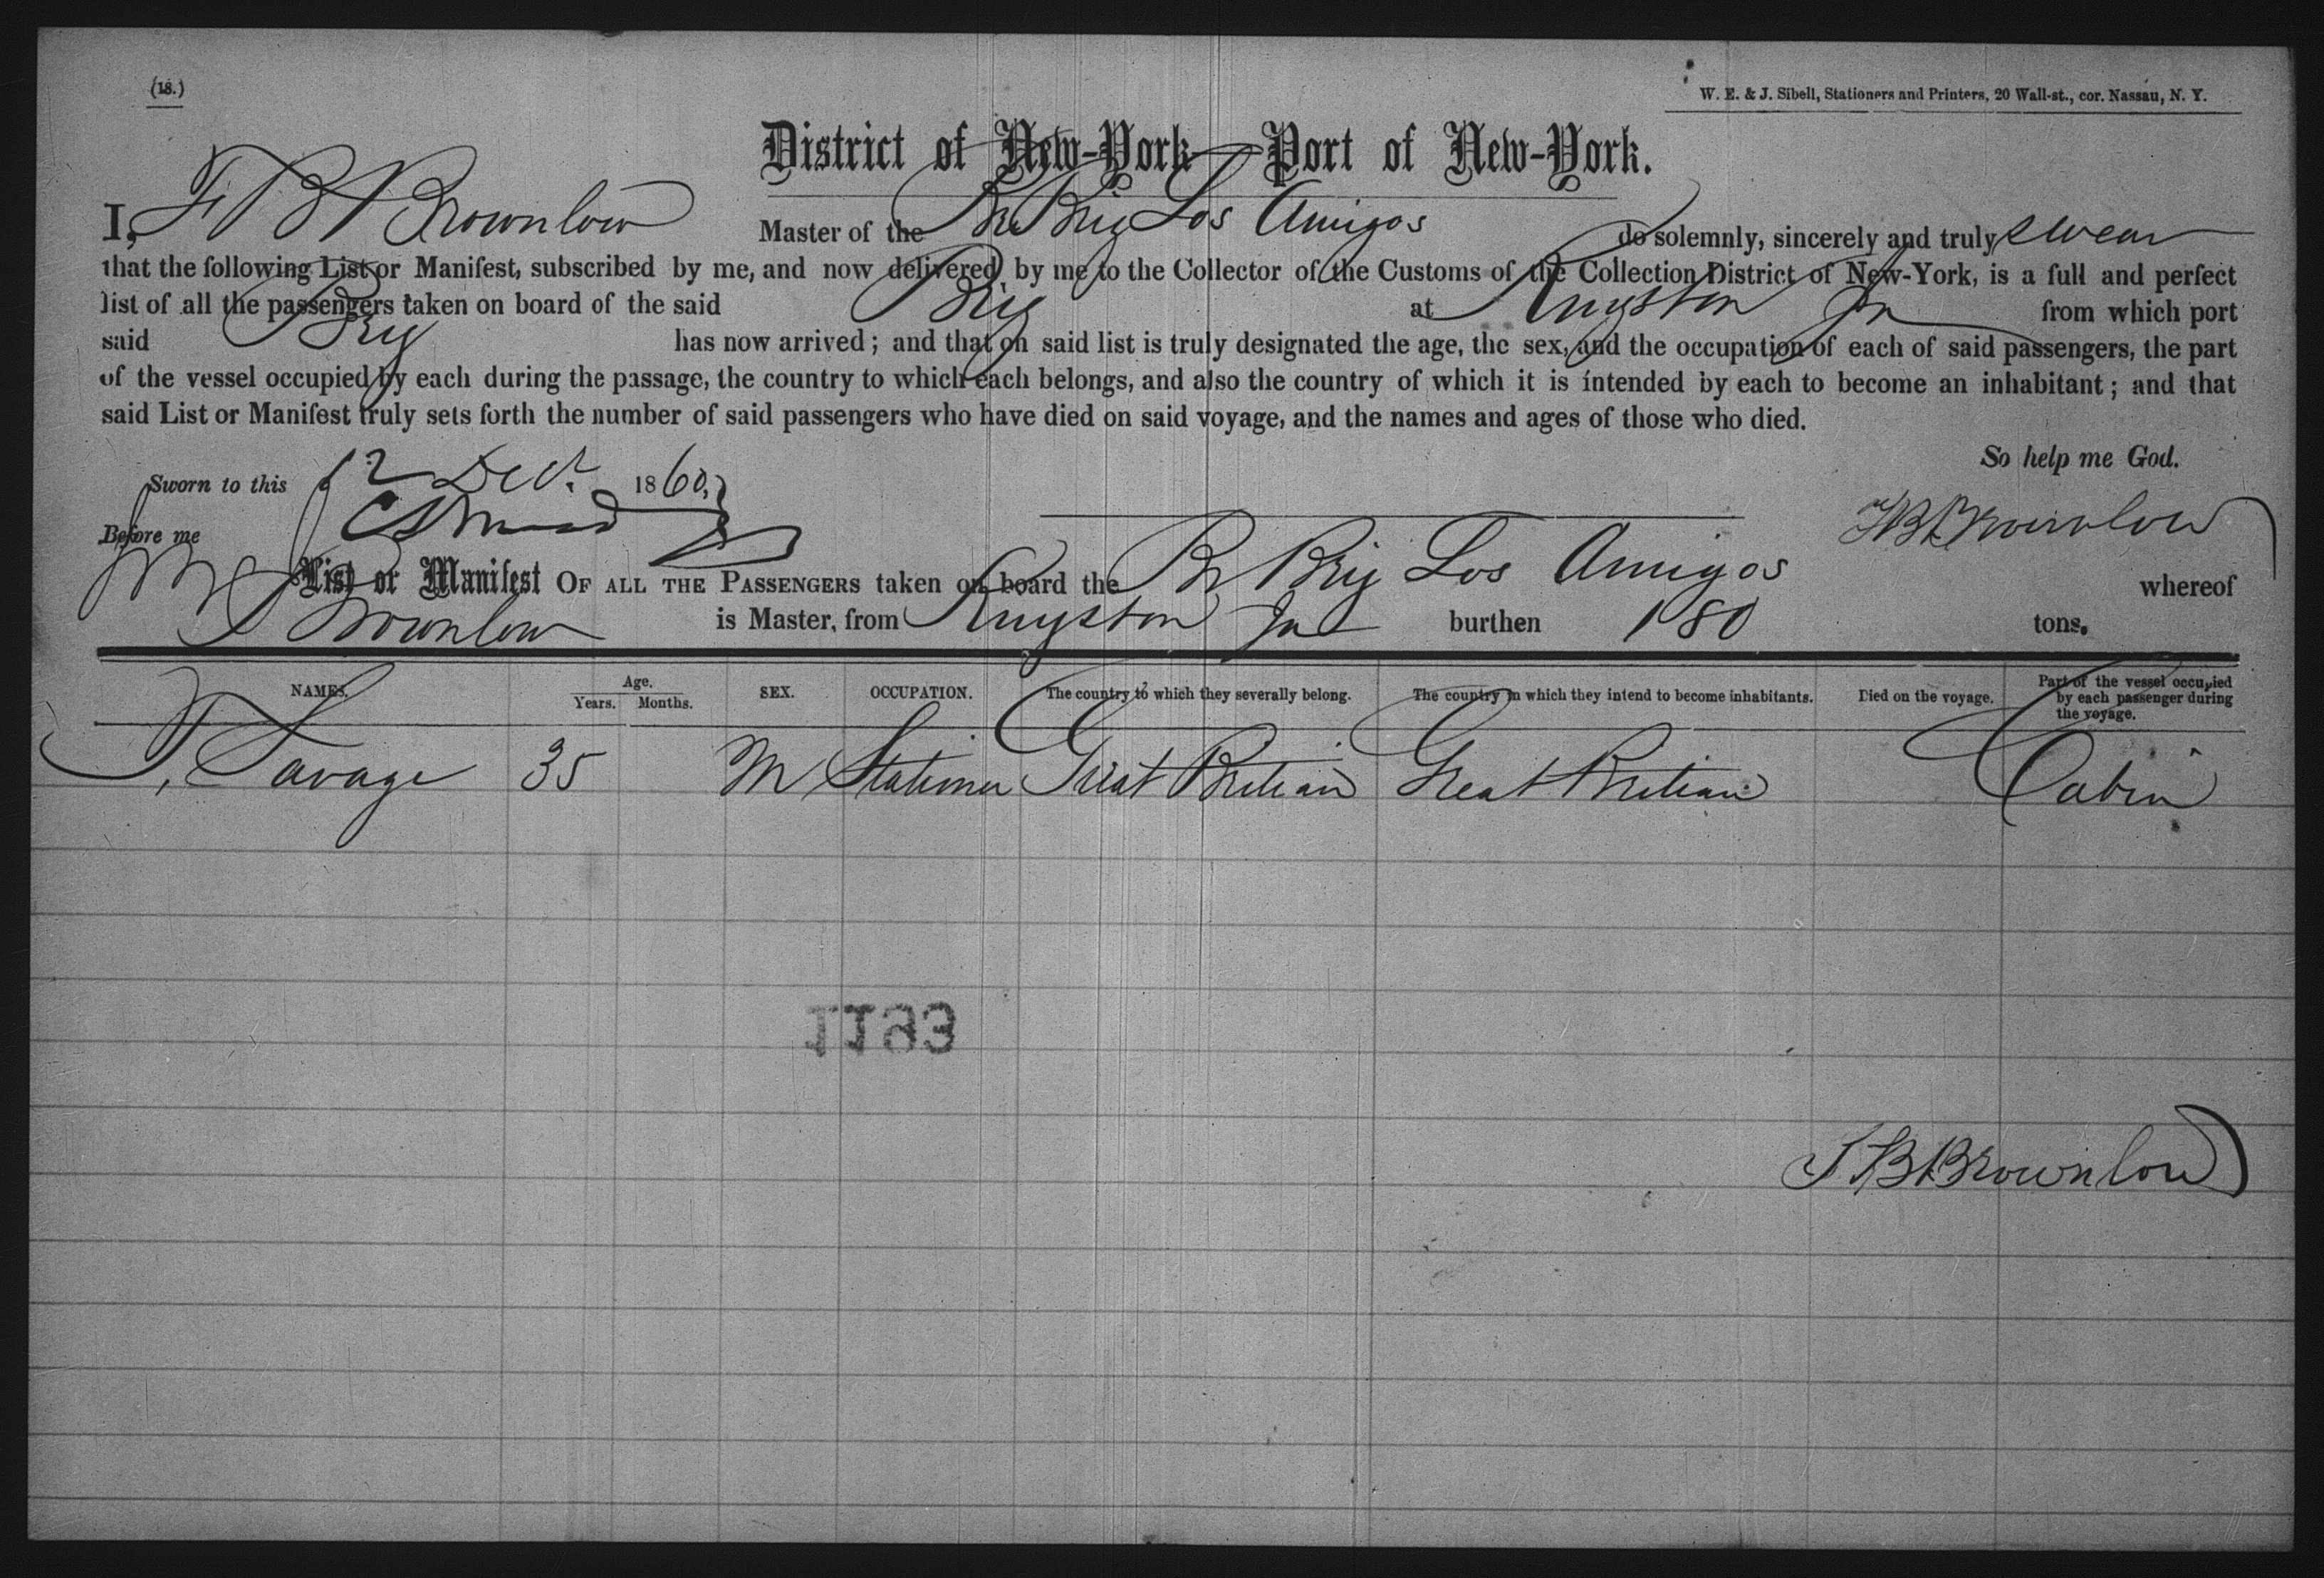 (18.)
W. E. & J. Sibell, Stationers and Printers, 20 Wall-st., cor. Nassau, N. Y.
District of New-York—Port of New-York.
I, F B Brownlow Master of the Br Brig Los Amigos do solemnly, sincerely and truly swear
that the following List or Manifest, subscribed by me, and now delivered by me to the Collector of the Customs of the Collection District of New-York, is a full and perfect
list of all the passengers taken on board of the said Brig at Kingston Ja from which port
said Brig has now arrived; and that on said list is truly designated the age, the sex, and the occupation of each of said passengers, the part
of the vessel occupied by each during the passage, the country to which each belongs, and also the country of which it is intended by each to become an inhabitant; and that
said List or Manifest truly sets forth the number of said passengers who have died on said voyage, and the names and ages of those who died.
So help me God.
Sworn to this 12 Dec. 1860,
Before me
Brownlow
List or Manifest OF ALL THE PASSENGERS taken on board the Br Brig Los Amigos whereof
Brownlow is Master, from Kingston Ja burthen 180 tons.
NAMES. Age. Years. Months. SEX. OCCUPATION. The country to which they severally belong. The country in which they intend to become inhabitants. Died on the voyage. Part of the vessel occupied by each passenger during the voyage.
Savage 35 M Stationer Great Britian Great Britian Cabin
1193
Brownlow